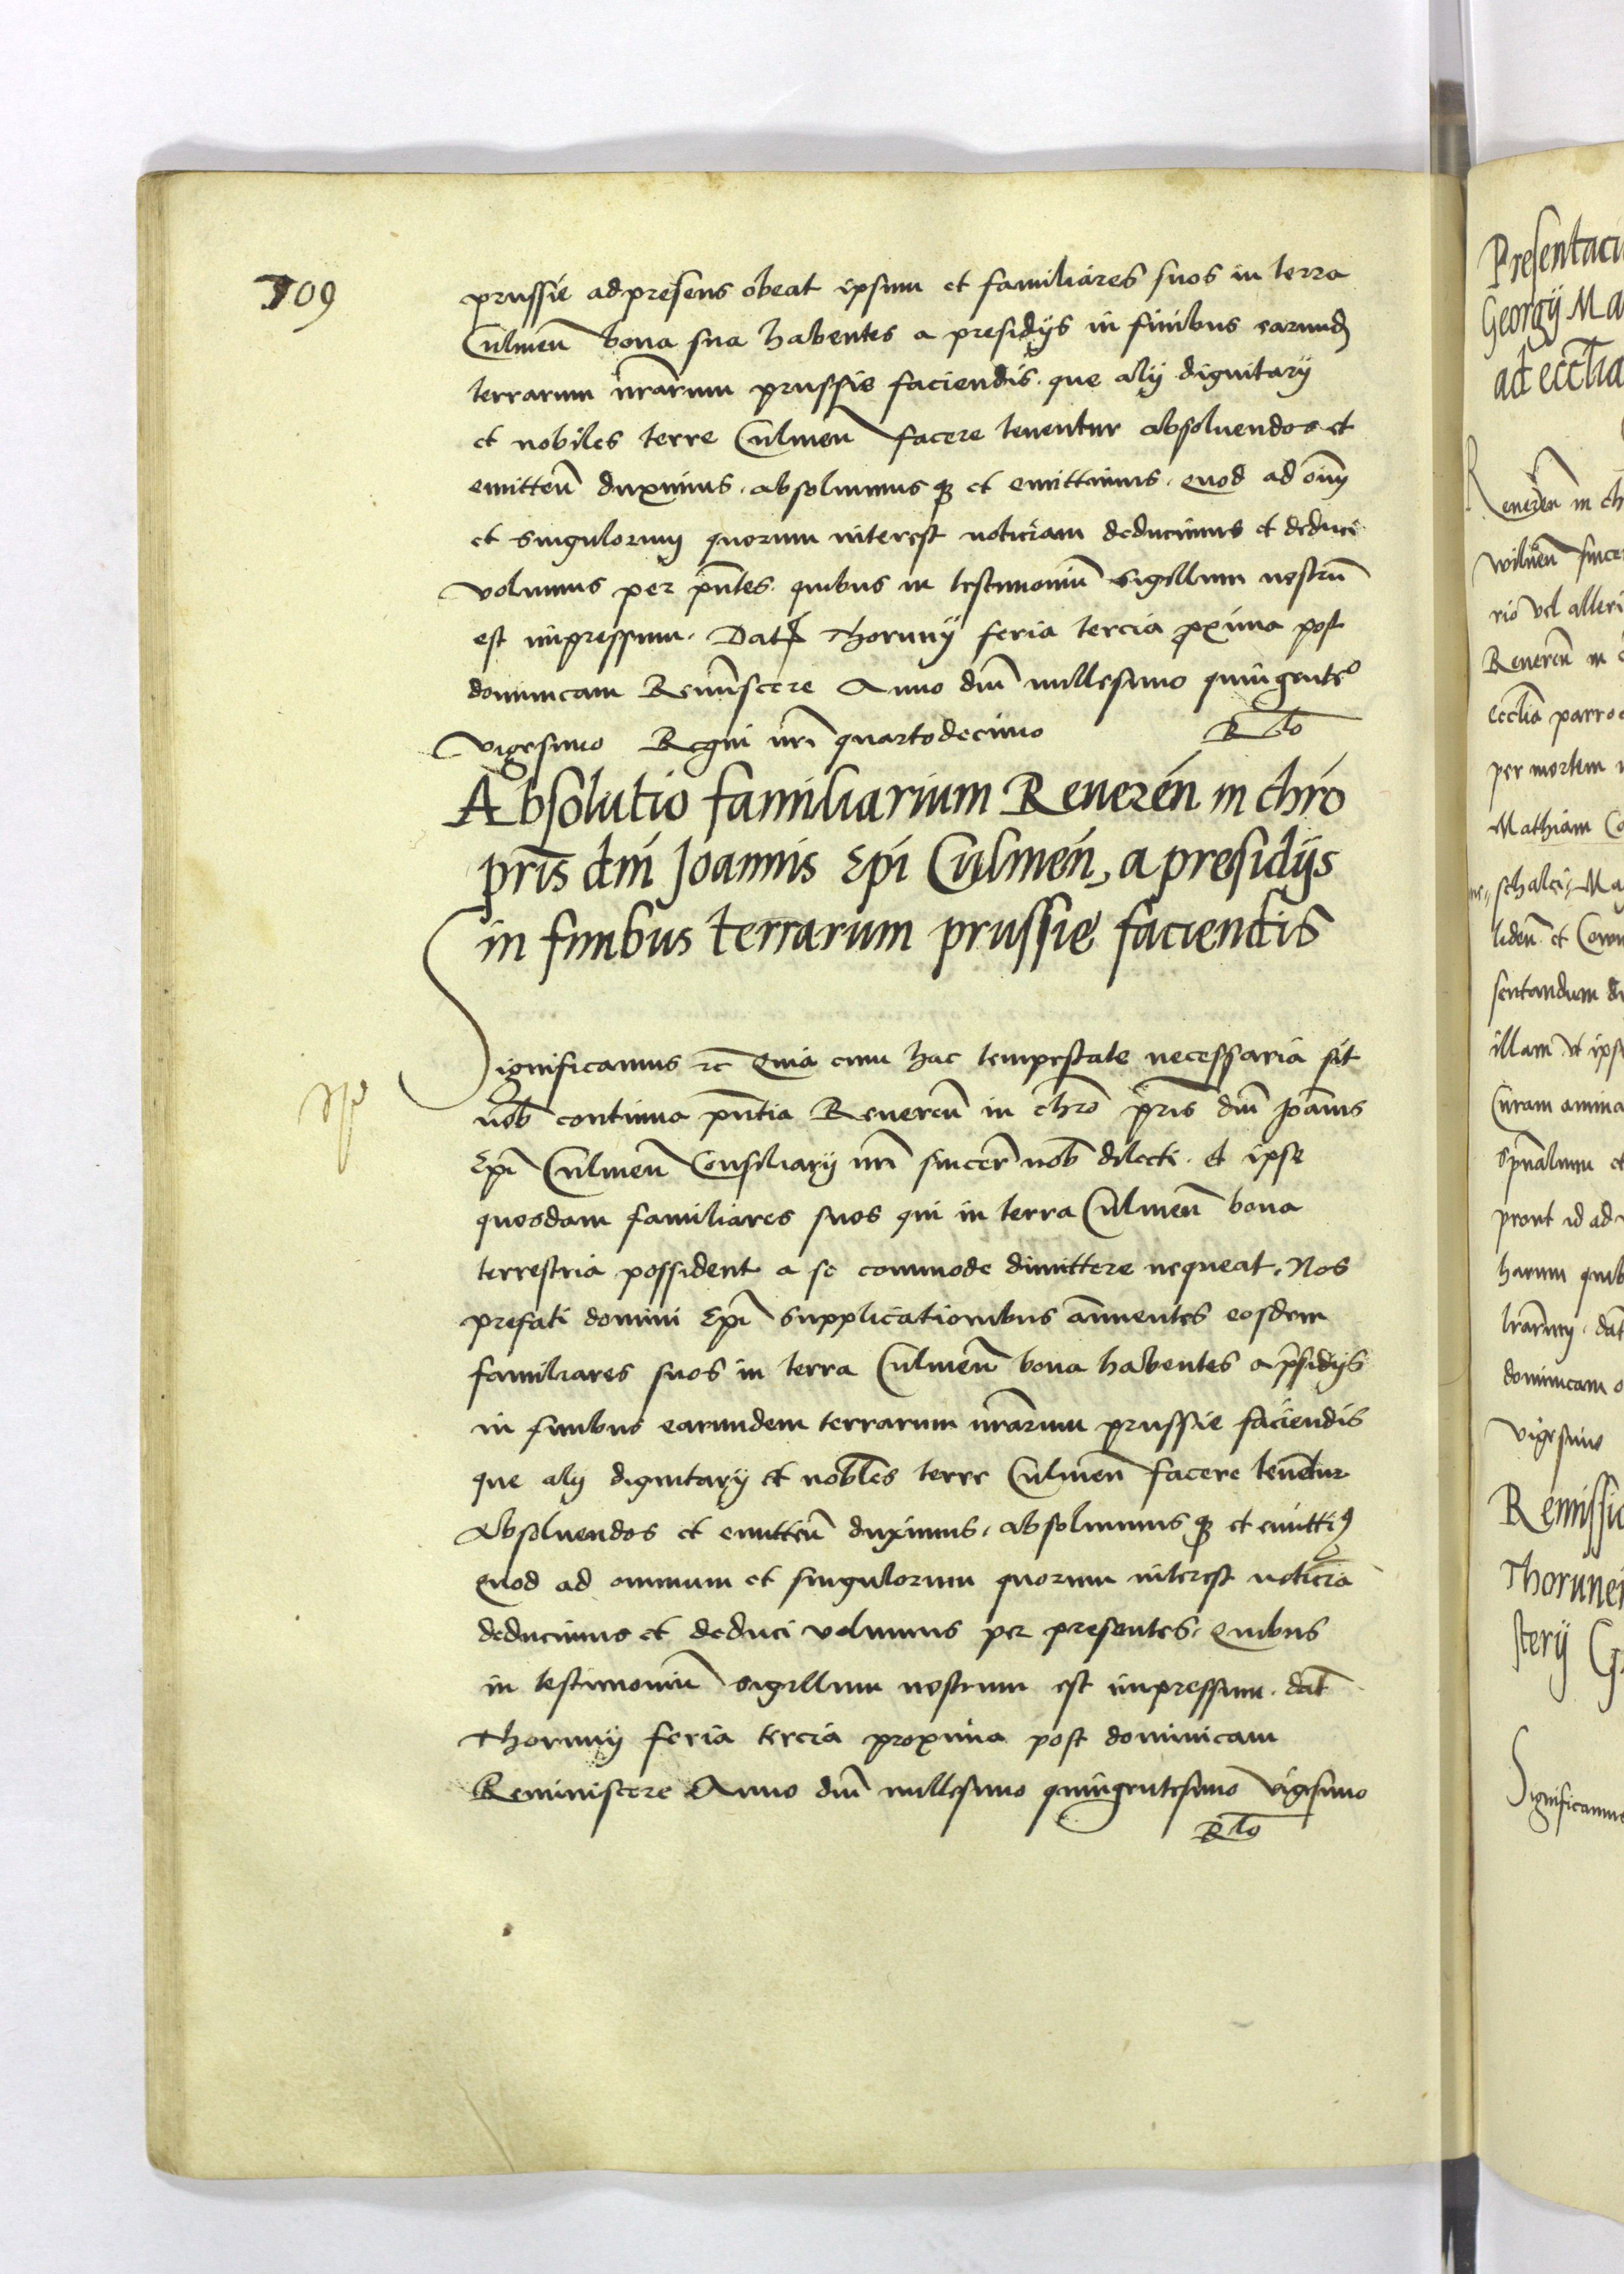 709
prussie ad presens obeat ipsum et familiares suos in terra
Culmeñ bona sua habentes a presidijs in finibus earund
terrarum nr̃arum prussie faciendis. que alij dignitarij
et nobiles terre Culmeñ facere tenentur absoluendos et
emitteñ duximus. absoluimus qꝫ et emittimus. quod ad om̃
et singulorum quorum interest noticiam deducimus et deduci
volumus per pñtes. quibus in testimoniũ sigillum nostrũ
est impressum. Dat Thorunij feria tercia ꝓxima post
dominicam Reminiscere Anno dñi millesimo quingenteᵒ
vigesimo Regni nr̃i quartodecimo Rlo
Absolutio familiarium Reuereń in chr̃o
pr̃is dñi Joannis Epĩ Culmeń, a presidijs
in finibus terrarum prussie faciendis
Significamus ꝛc̃ Quia cum hac tempestate necessaria sit
nob̃ continua pñtia Reuereñ in chr̃o pr̃is dñi Joãnis
Epĩ Culmeñ Consiliarij nr̃i sincer̃ nob̃ dilecti. et ipse
quosdam familiares suos qui in terra Culmeñ bona
terrestria possident a se commode dimittere nequeat. Nos
prefati domini Epĩ supplicationibus annuentes eosdem
familiares suos in terra Culmeñ bona habentes a p̃sidijs
in finibus earundem terrarum nr̃arum prussie faciendis
que alij dignitarij et nobl̃es terre Culmeñ facere teneñtur
Absoluendos et emitteñ duximus. absoluimus qꝫ et emittiꝰ
Quod ad omnium et singulorum quorum interest noticiã
deducimus et deduci volumus per presentes. Quibus
in testimoniũ sigillum nostrum est impressum. dat̃
Thorunij feria tercia proxima post dominicam
Reminiscere Anno dñi millesimo quingentesimo vigesimo
Rlo
Presentaci
Georgij Ma
ad eccl̃ia
Reuereñ in ch
wilneñ since
rio vel alteri
Reuereñ in
eccl̃ia parro
per mortem
Mathiam Co
schalci. Ma
lideñ et Coron
sentandum d
illam et ips
Curam anima
sp̃ualium et
prout id ad
harum quib
lr̃arum. dat̃
dominicam o
vigesimo
Remissio
Thorunen
sterij G
Significamus